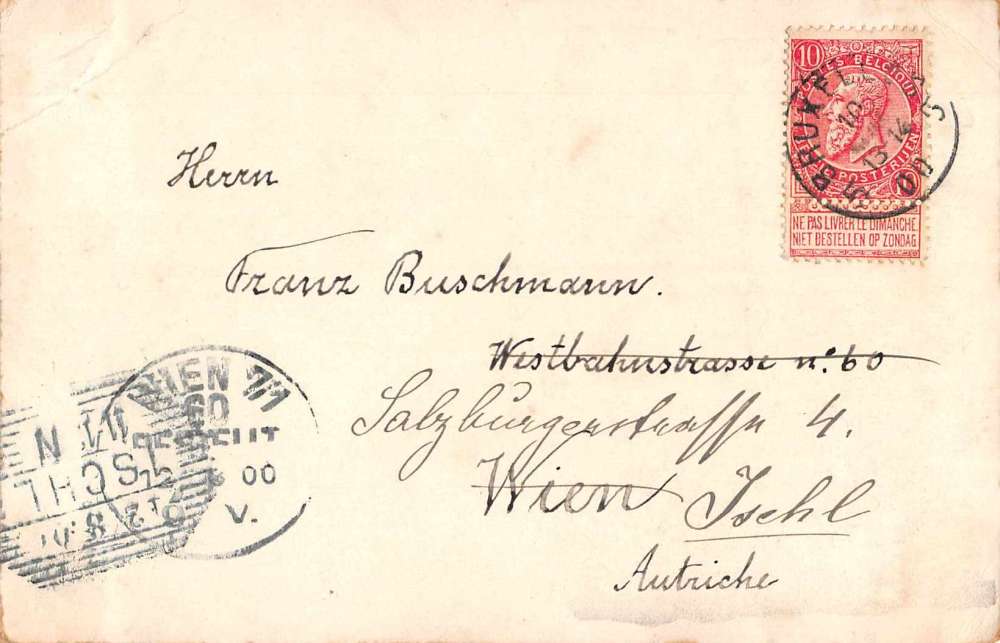 10
POSTES BELGIQUE
POSTERIJEN
NE PAS LIVRER LE DIMANCHE
NIET BESTELLEN OP ZONDAG
Herrn
Franz Buschmann.
Westbahnstrasse no. 60
Salzburgerstrasse 4.
Wien Ischl
Autriche
WIEN 7/1
60
BESTELLT
00
V.
ISCHL